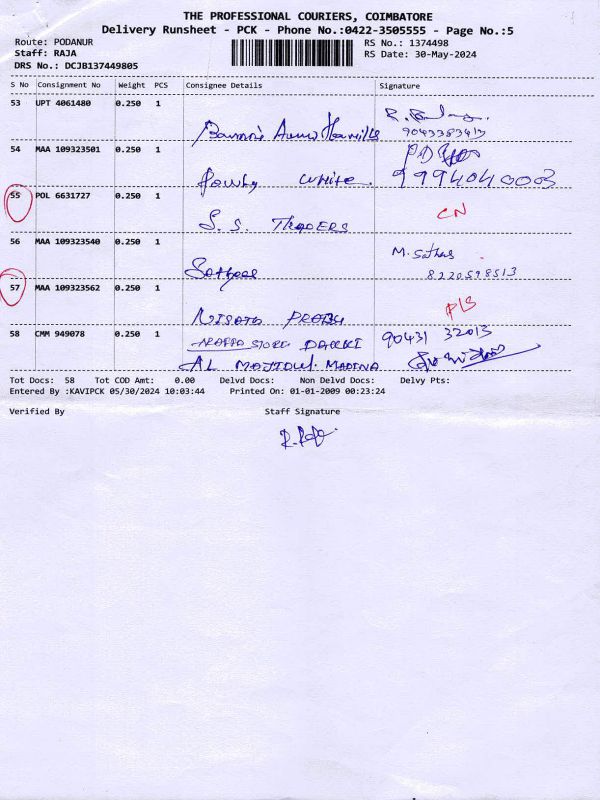 THE PROFESSIONAL COURIERS, COIMBATORE
Delivery Runsheet - PCK - Phone No.:0422-3505555 - Page No.:5
Route: PODANUR RS No.: 1374498
Staff: RAJA RS Date: 30-May-2024
DRS No.: DCJB137449805
S No Consignment No Weight PCS Consignee Details Signature
53 UPT 4061480 0.250 1
9043383413
54 MAA 109323501 0.250 1
White 9994040003
55 POL 6631727 0.250 1 CN
S. S. TRADERS
56 MAA 109323540 0.250 1 M. Sathas
8220598513
57 MAA 109323562 0.250 1
58 CMM 949078 0.250 1 90431 32013
STORE
AL MADINA
Tot Docs: 58 Tot COD Amt: 0.00 Delvd Docs: Non Delvd Docs: Delvy Pts:
Entered By :KAVIPCK 05/30/2024 10:03:44 Printed On: 01-01-2009 00:23:24
Verified By Staff Signature